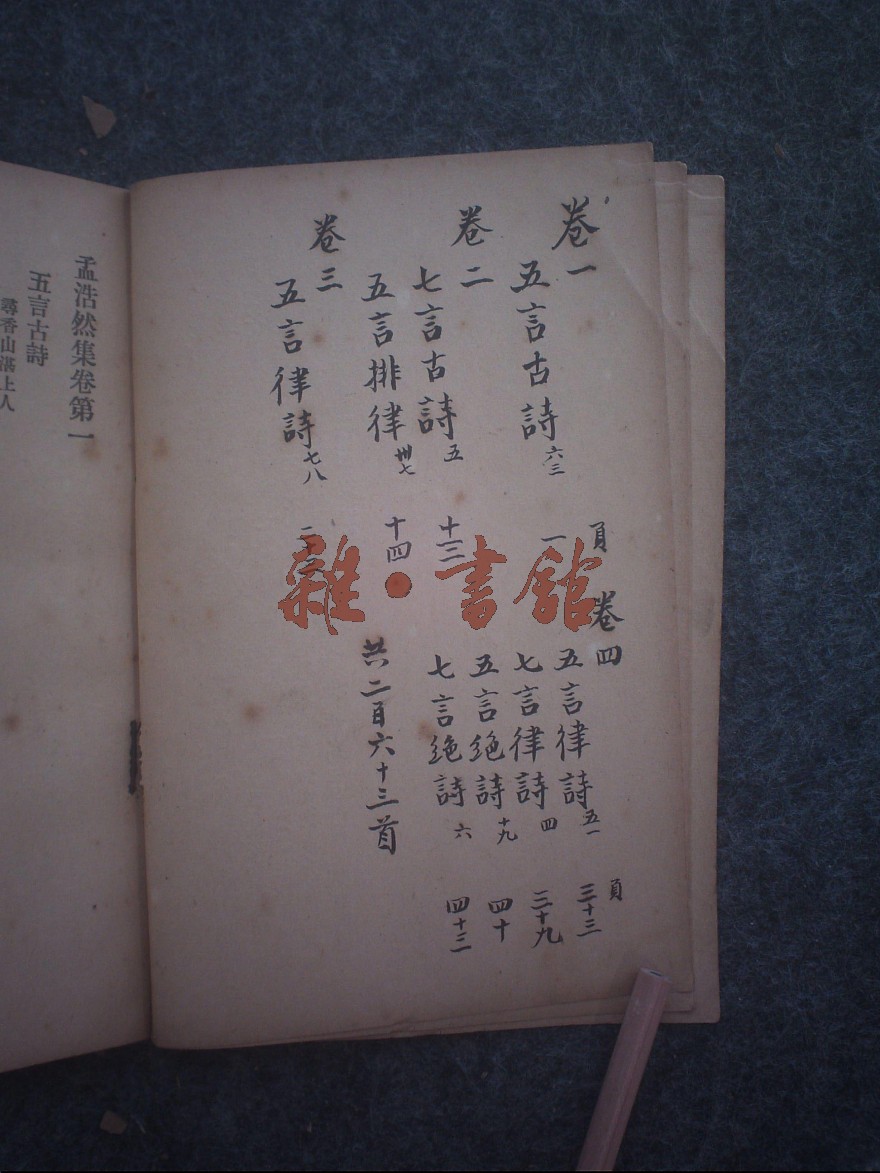 卷一
五言古詩 六三 頁 一
卷二
七言古詩 五 十三
五言排律 卅七 十四
卷三
五言律詩 七八
卷四
五言律詩 五一 頁 三十三
七言律詩 四 三十九
五言絶詩 十九 四十
七言絶詩 六 四十三
共二百六十三首
孟浩然集卷第一
五言古詩
尋香山湛上人
雜·書館